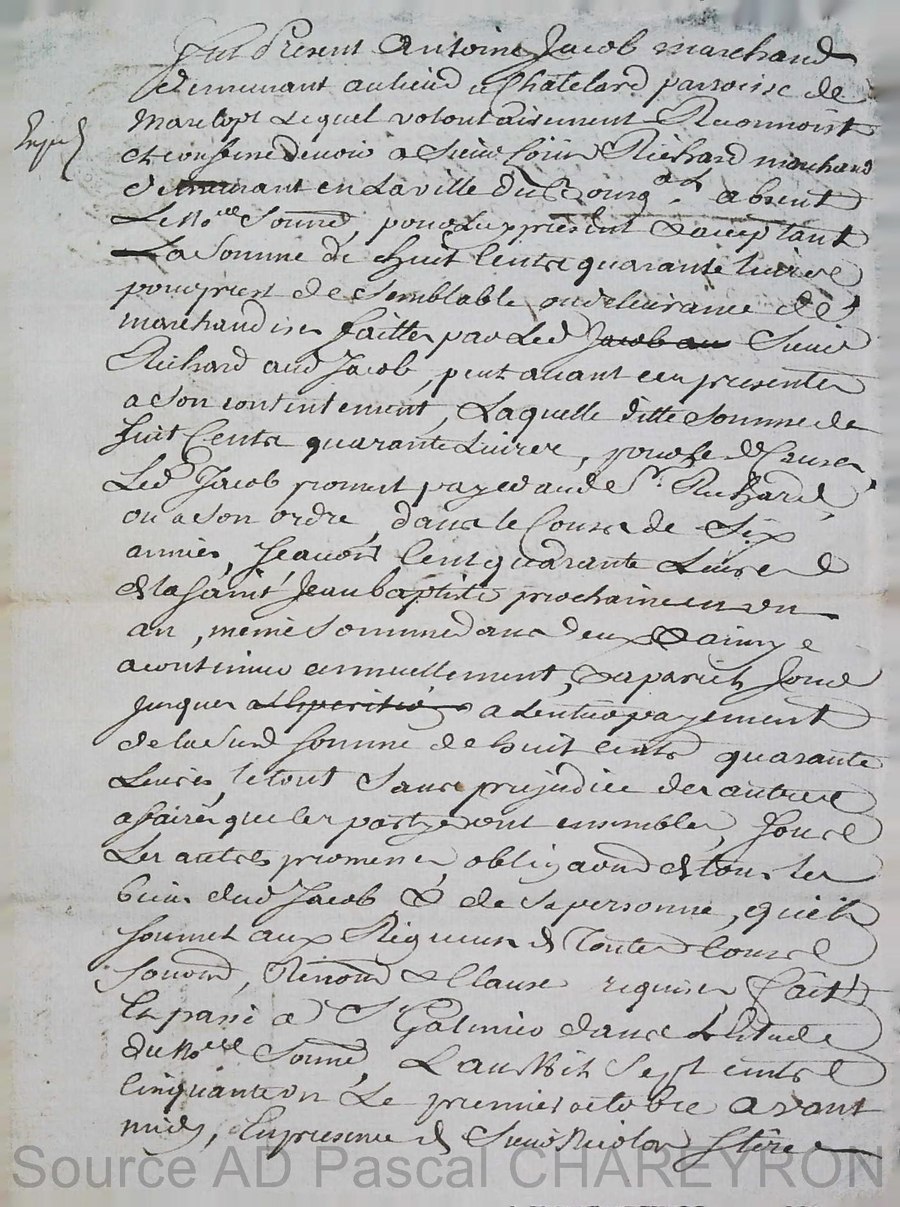 Fut Présent Antoine Jacob marchand
demeurant au lieu de Châtelard parroisse de
Marclopt Lequel volontairement Reconnoist
et confesse devoir a Sieur Louis Richard marchand
demeurant en La ville du Bourg a.l. absent
Le No.re Soussd, pour lui présent & acceptant
La Somme de huit Cents quarante livres
pour prest de semblable ou délivrance de
marchandises faittes par Led Jacob au Sieur
Richard aud Jacob, peut avant ces presentes
a Son contentement, Laquelle ditte Somme de
huit Cents quarante Livres, pour led. causes
Led Jacob promet payer aud S.r Richard,
ou a son ordre, dans le Cours de Six
années, Scavoir Cent quarante Livres
de la Saint Jean Baptiste prochaine en un
an, même Somme dans deux & ainsy
a continuer annuellement, & a pareil Jour
jusques a Lentier payement
de la Susd Somme de huit cents quarante
Livres, le tout Sans préjudice des autres
afaires que les partyes ont ensembles, Sous
Les autres promesses, obligaons de tous les
biens dud Jacob & de Sa personne, quil
Soumet aux Rigueurs de Toutes Cours
Soumd, Renond & Clauses requises fait
Et passé a S.t Galmier dans Létude
du No.re Soussd, L'an Mil Sept cents
Cinquante un Le premier octobre avant
midy, En presence de Sieur Nicolas
Source AD Pascal CHAREYRON